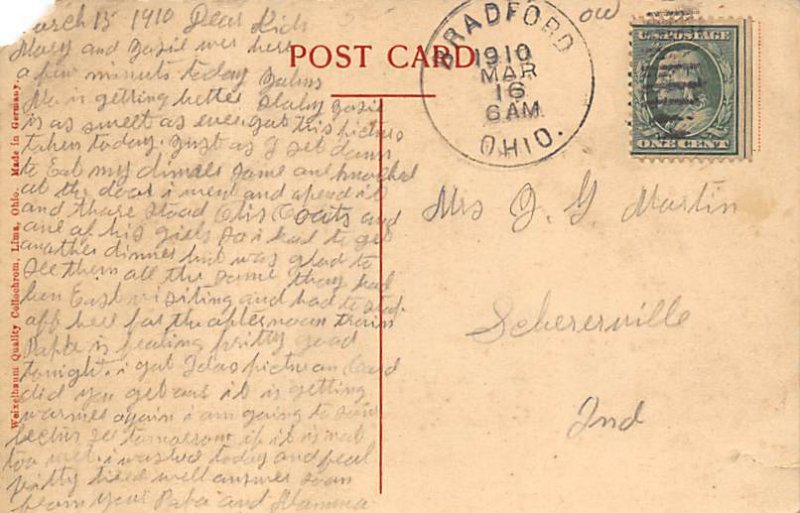 March 15 1910 Dear Kids
Mary and Basil was here
a few minuts today
He is getting better Baby Basil
is as sweet as ever. got this picture
taken today. Just as I set down
to Eat my dinner some one knocked
at the door i went and opend it
and thare stood Otis Coats and
one of his girls so i had to get
another dinner but was glad to
see them all the same thay had
ben East visiting and had to stop
off here for the afternoon train
Papa is feeling pritty good
tonight. i got Idas picture Card
did you get one it is getting
warmer again i am going to
tomorrow if it is not
too wet. i washed today and feel
pritty tired will answer soon
from your Papa and Mamma
POST CARD
BRADFORD
1910
MAR
16
6 AM
OHIO.
U.S. POSTAGE
ONE CENT
Mrs J. G. Martin
Schererville
Ind
Weixelbaum Quality Collochrom, Lima, Ohio. Made in Germany.